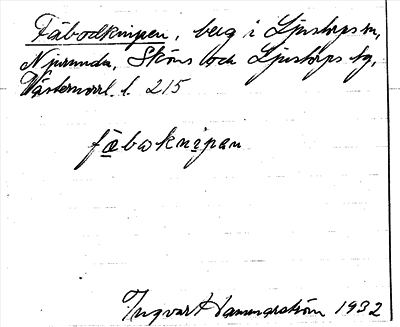 Fäbodknipen, berg i Ljustorps sn,
Njurunda, Sköns och Ljustorps tg,
Västernorrl. l. 215
fäbaknipan
Ingvar Hammarström 1932